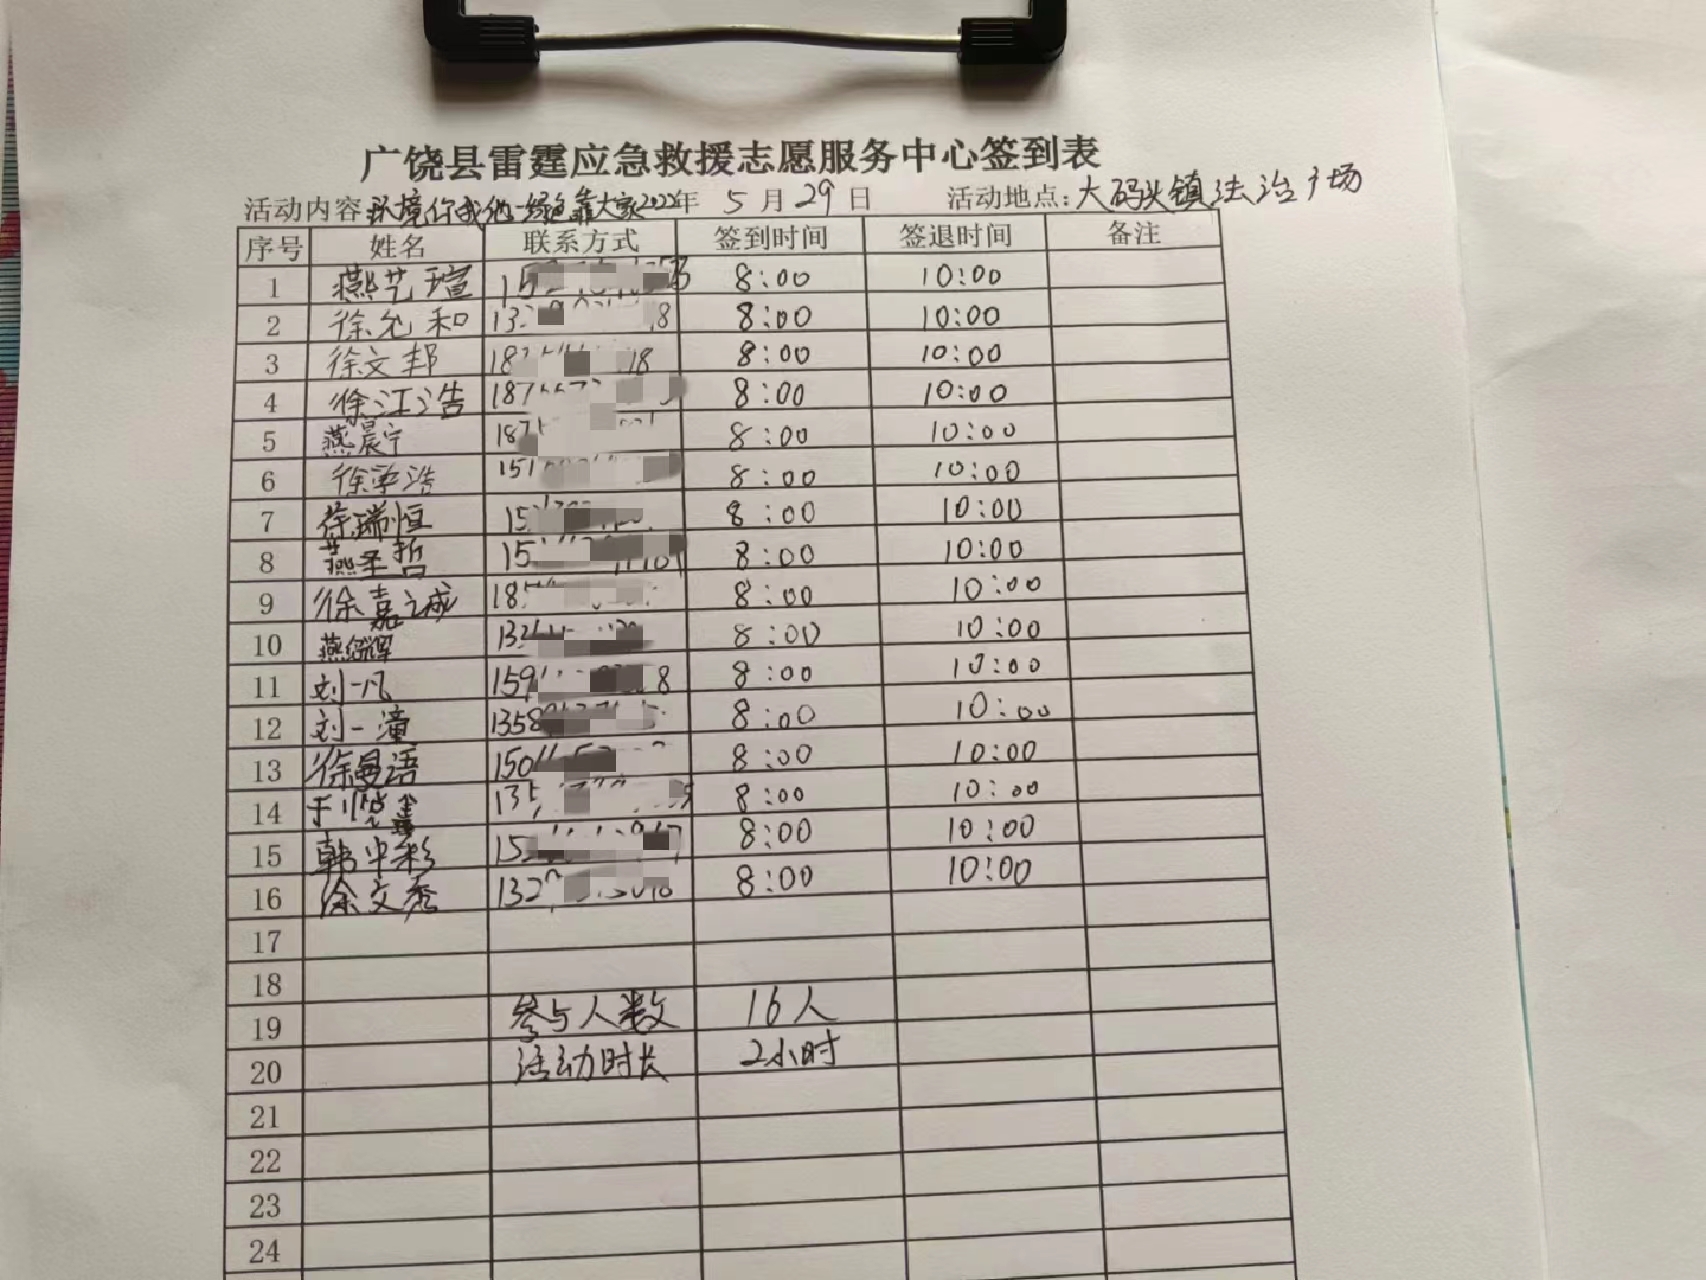 广饶县雷霆应急救援志愿服务中心签到表
活动内容:环境你我他 绿色靠大家2022年 5月29日 活动地点:大码头镇法治广场
序号 姓名 联系方式 签到时间 签退时间 备注
1 燕艺瑄 15 8:00 10:00
2 徐允和 13 8 8:00 10:00
3 徐文邦 18 18 8:00 10:00
4 徐江浩 187 8:00 10:00
5 燕晨宁 187 8:00 10:00
6 徐 浩 151 8:00 10:00
7 徐瑞恒 15 8:00 10:00
8 燕圣哲 15 8:00 10:00
9 徐嘉诚 18 8:00 10:00
10 燕 辉 13 8:00 10:00
11 刘一凡 159 8 8:00 10:00
12 刘一潼 1358 8:00 10:00
13 徐曼语 150 8:00 10:00
14 于 鑫 135 8:00 10:00
15 韩中彩 15 8:00 10:00
16 徐文秀 132 8:00 10:00
17
18
19 参与人数 16人
20 活动时长 2小时
21
22
23
24